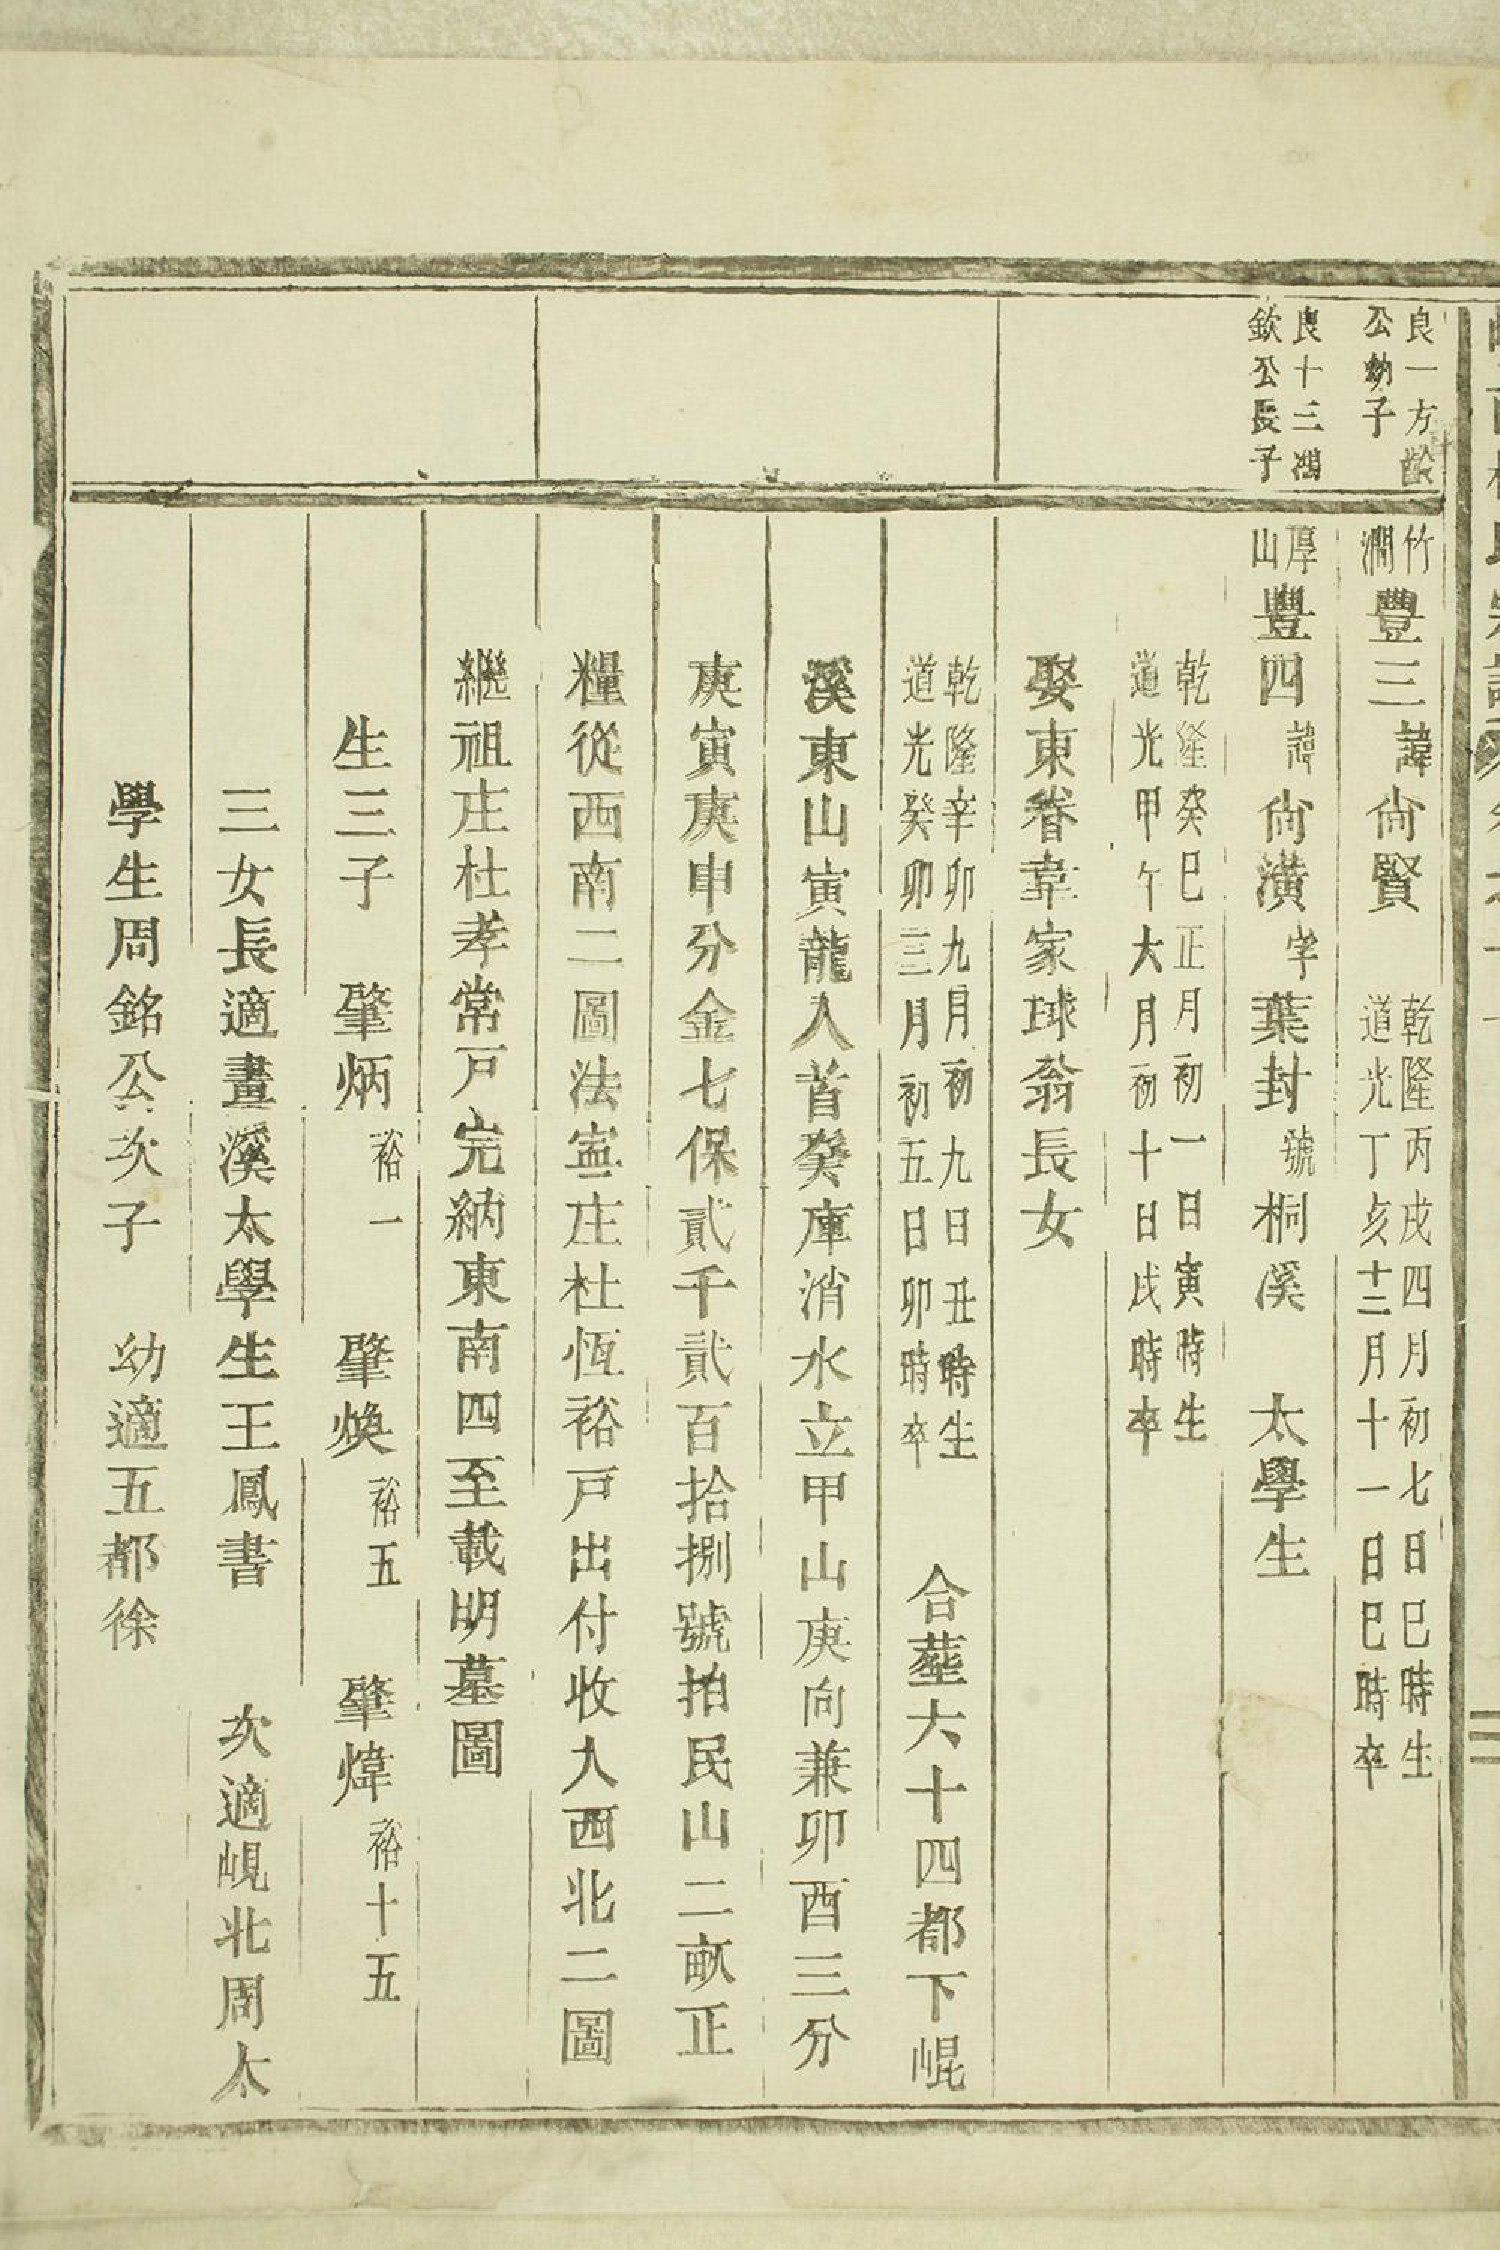 良一方齡
公幼子
竹
澗
豐三諱尙賢
乾隆丙戌四月初七日巳時生
道光丁亥十二月十一日巳時卒
良十三鴻
欽公長子
厚
山
豐四諱尙潢字葉封號桐溪　太學生
乾隆癸巳正月初一日寅時生
道光甲午六月初十日戌時卒
娶東眷韋家球翁長女
乾隆辛卯九月初九日丑時生
道光癸卯三月初五日卯時卒
合塟六十四都下崐
溪東山寅龍入首癸庫消水立甲山庚向兼卯酉三分
庚寅庚申分金七保貳千貳百拾捌號拍民山二畝正
糧從西南二圖法寍庄杜恆裕戸出付收入西北二圖
繼祖庄杜孝常戸完納東南四至載明墓圖
生三子　肇炳裕一　肇煥裕五　肇煒裕十五
三女長適畫溪太學生王鳳書　次適峴北周太
學生周銘公次子　幼適五都徐